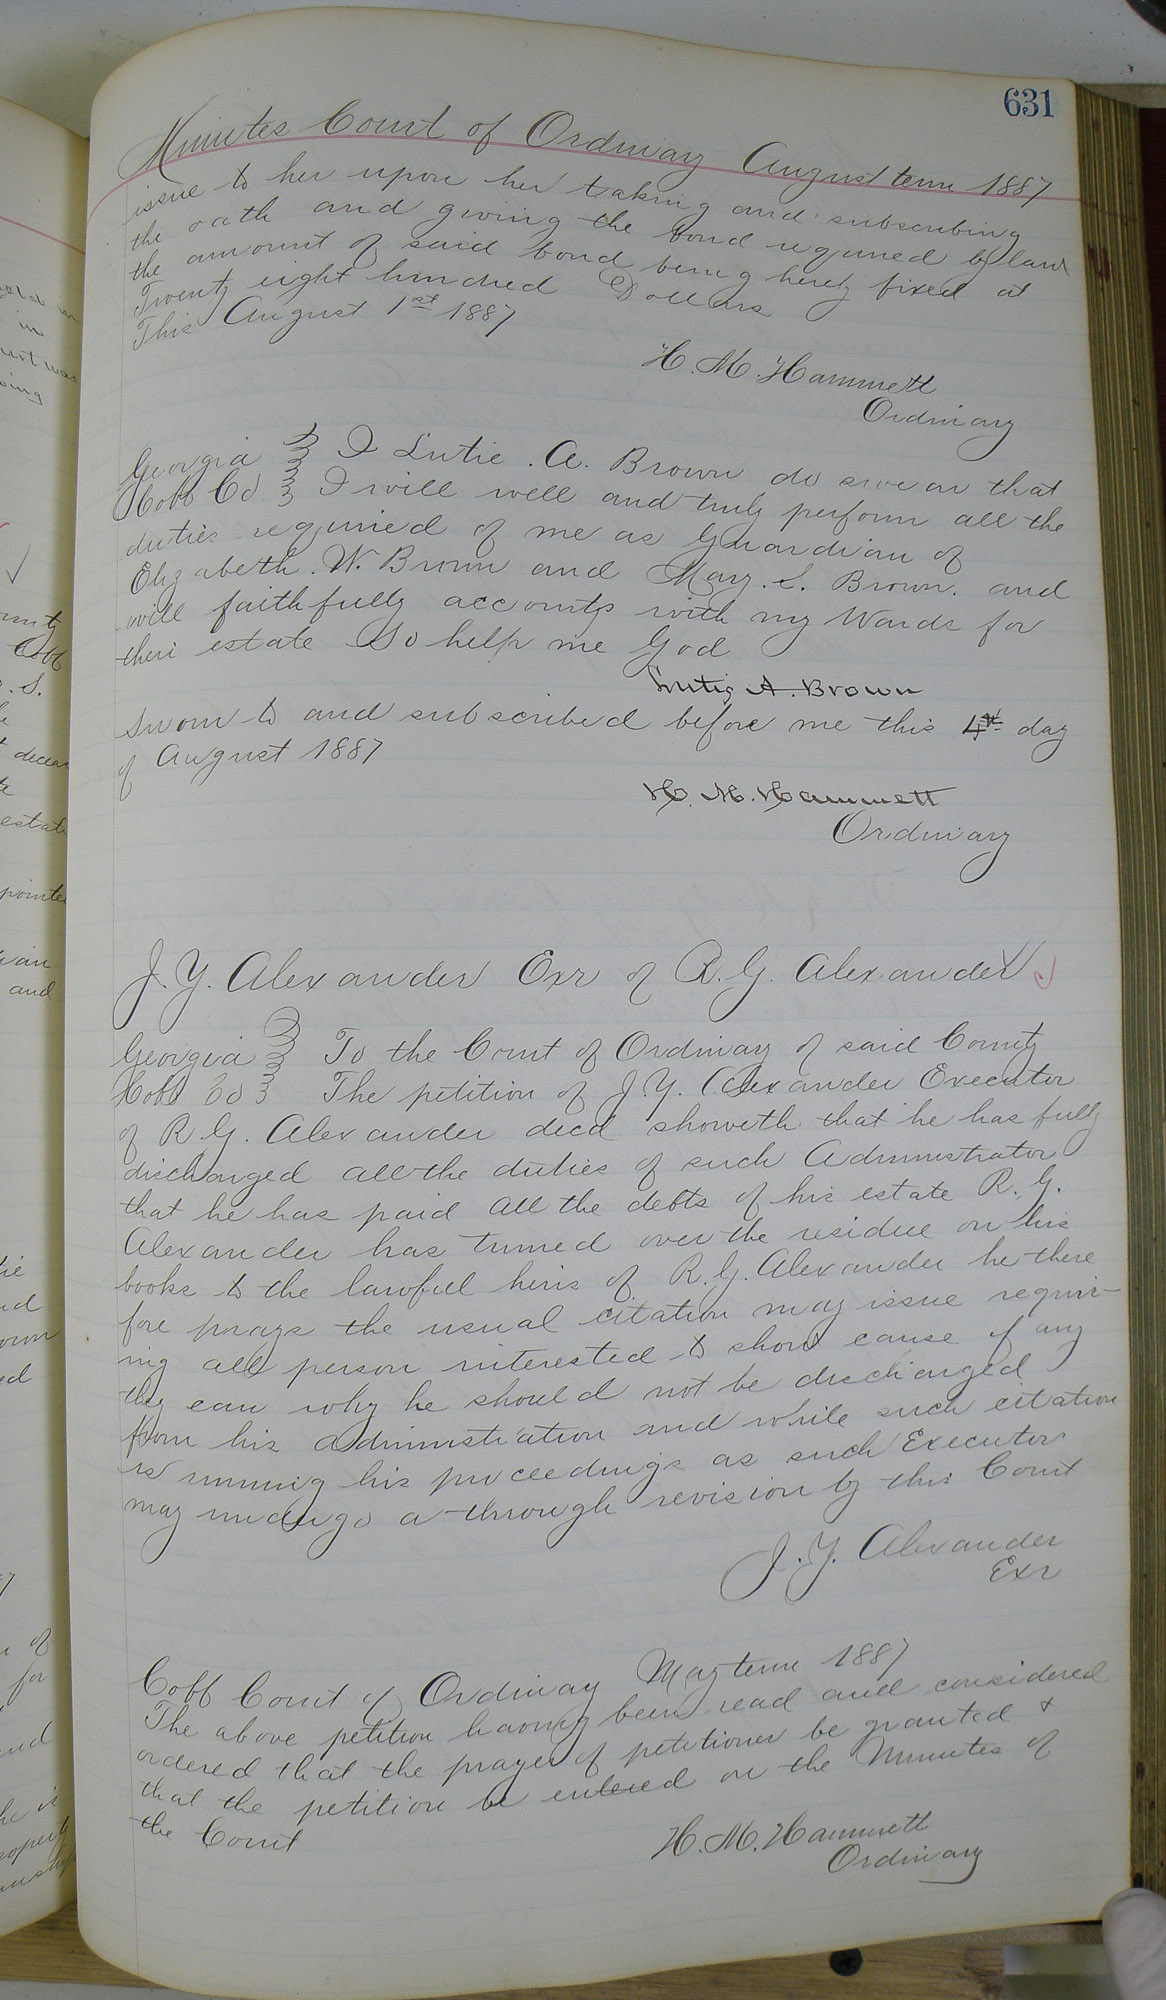 631
Minutes Court of Ordinary August term 1887
issue to her upon her taking and subscribing
the oath and giving the bond required by law
the amount of said bond being hereby fixed at
Twenty eight hundred Dollars
This August 1st 1887
H. M. Hammett
Ordinary
Georgia } I Lutie . A. Brown do swear that
Cobb Co } I will well and truly perform all the
duties required of me as Guardian of
Elizabeth. W. Brown and May. S. Brown. and
will faithfully accounts with my Wards for
their estate So help me God
Lutie A. Brown
Sworn to and subscribed before me this 4th day
of August 1887
H. M. Hammett
Ordinary
J. Y. Alexander Exr of R. G. Alexander
Georgia } To the Court of Ordinary of said County
Cobb Co } The petition of J. Y. Alexander Executor
of R. G. Alexander decd showeth that he has fully
discharged all the duties of such Administrator
that he has paid all the debts of his estate R. G.
Alexander has turned over the residue on his
books to the lawful heirs of R. G. Alexander he there
fore prays the usual citation may issue requir-
ing all person interested to show cause if any
they can why he should not be discharged
from his administration and while such citation
is running his proceedings as such Executor
may undergo a through revision by this Court
J. Y. Alexander
Exr
Cobb Court of Ordinary May term 1887
The above petition having been read and considered
ordered that the prayer of petitioner be granted &
that the petition be entered on the Minutes of
the Court
H. M. Hammett
Ordinary